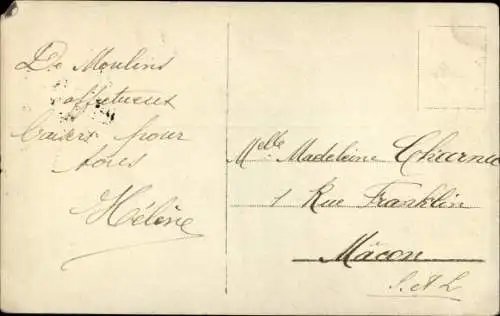 De Moulins
affectueux
baisers pour
tores
Hélène
Melle Madeleine Charnac
1 Rue Franklin
Mâcon
S. & L